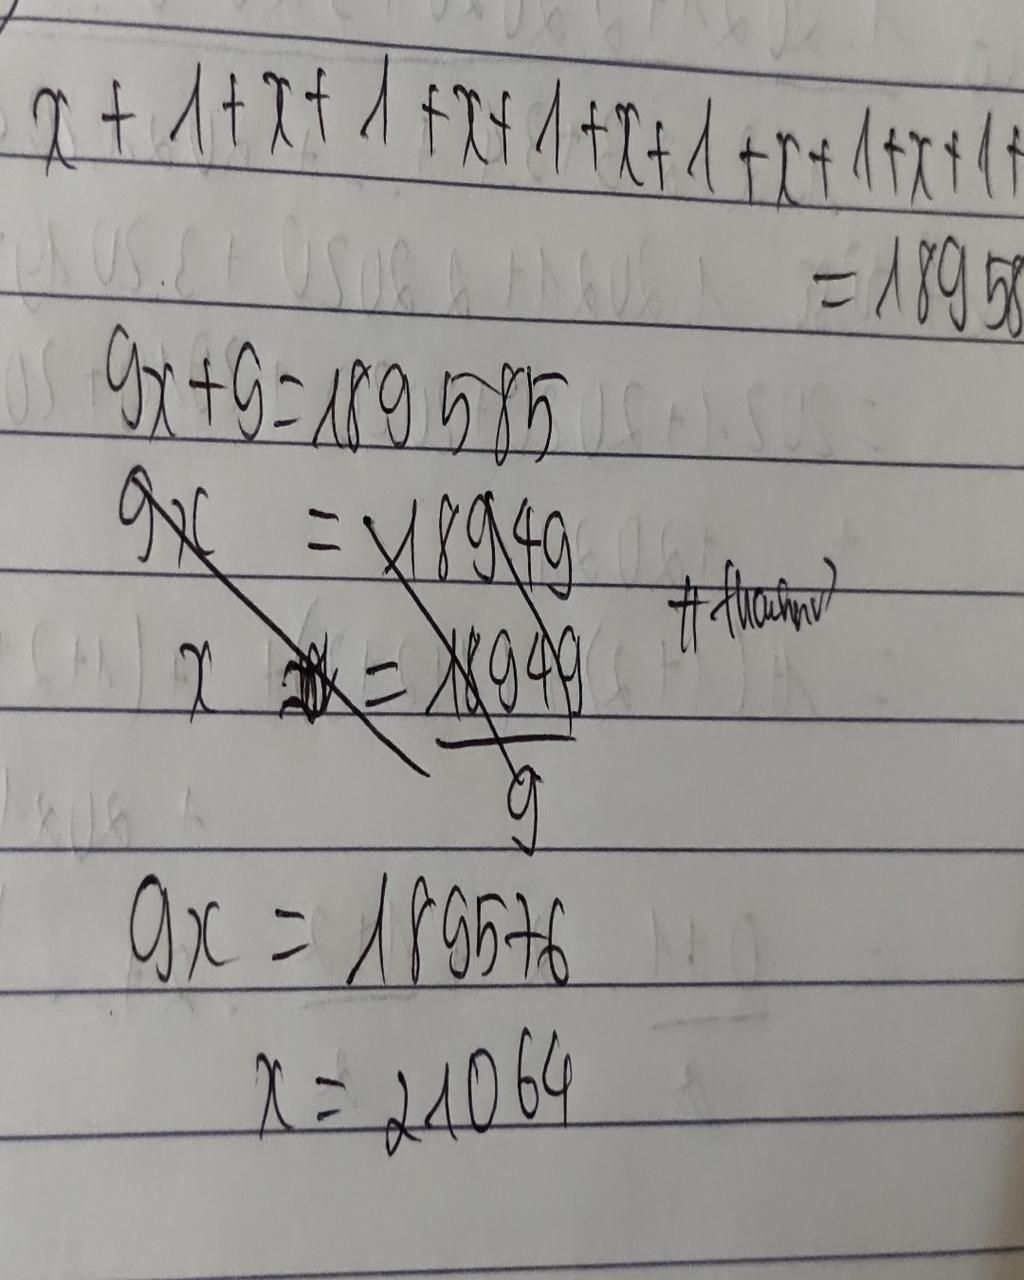 x + 1 + x + 1 + x + 1 + x + 1 + x + 1 + x + 1 +
= 18958
9x + 9 = 189 585
9x = 18949
x = 18949
9
9x = 189576
x = 21064